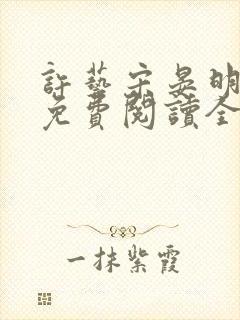 許藝宋晏明
免費閱讀全
一抹紫霞